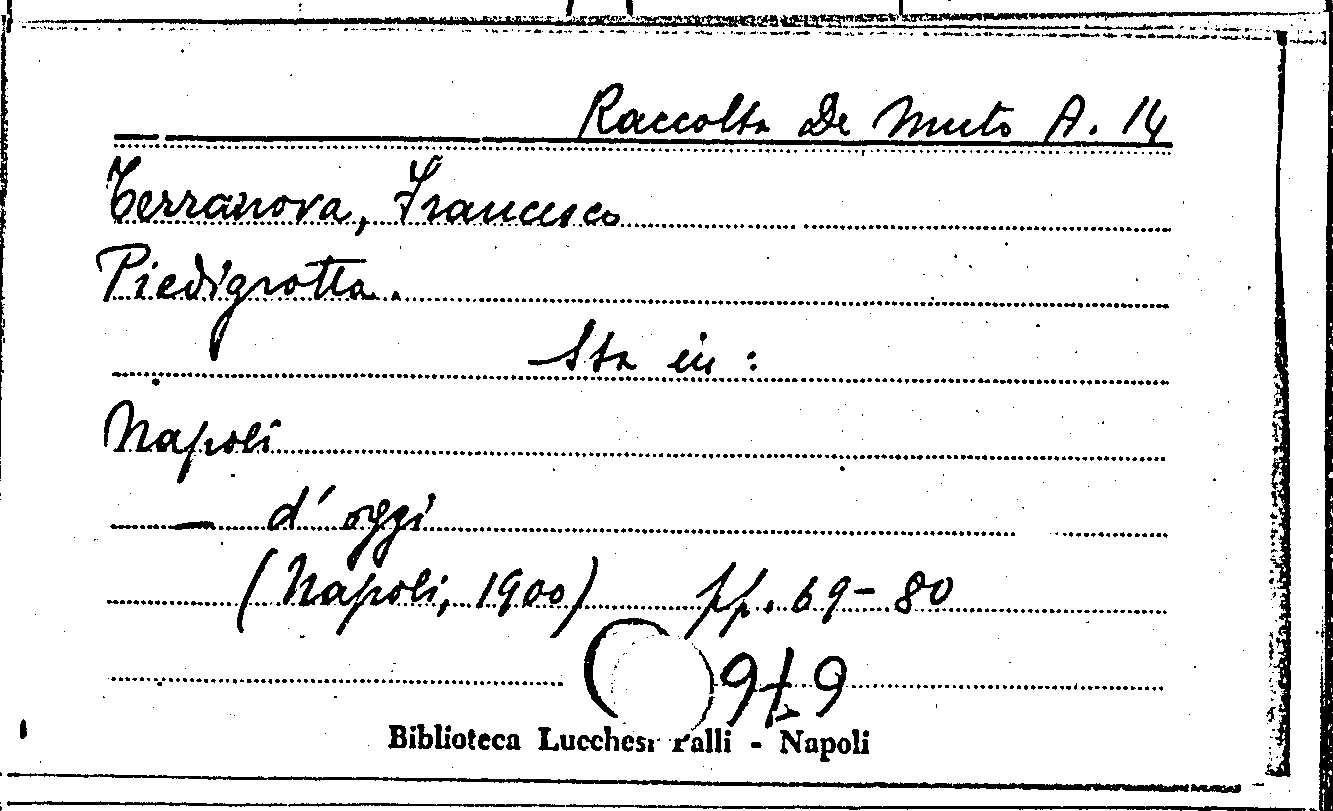 Raccolta De Muto A. 14
Terranova, Francesco
Piedigrotta.
Sta in:
Napoli
— d'oggi
(Napoli, 1900) pp. 69-80
Biblioteca Lucchesi Palli - Napoli